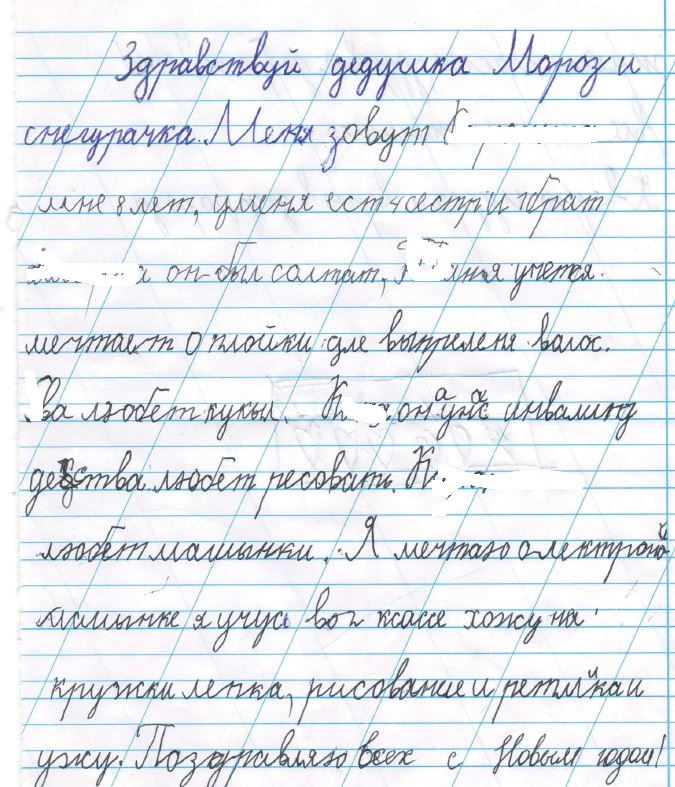 Здравствуй дедушка Мороз и
снегурачка. Меня зовут
мне 8 лет, уменя ест 4 сестр и 1 брат
он был солтат, учется.
мечтает о плойки дле волос.
любет кукыл. он а у нас инвалинд
детства любет ресовать.
любет машынки. Я мечтаю о лектроной
машынке я учус во 2 класе хожу на
кружки лепка, рисование и
ужу. Поздравляю всех с Новым годом!